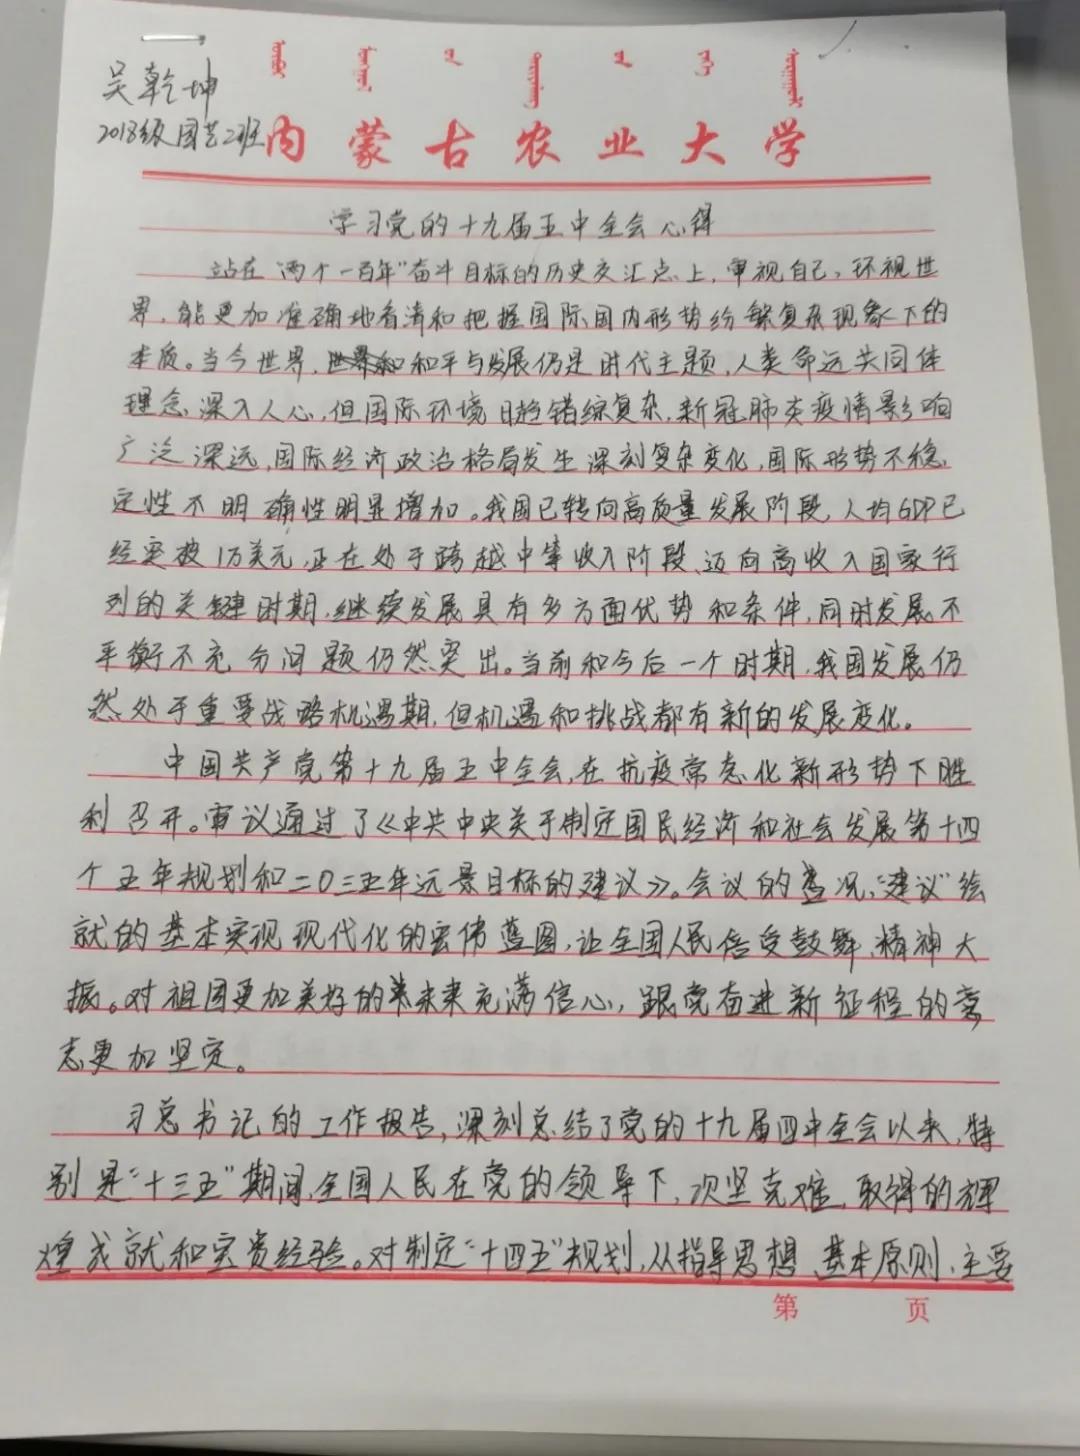 吴乾坤
2018级园艺2班
内蒙古农业大学
学习党的十九届五中全会心得
站在"两个一百年"奋斗目标的历史交汇点上,审视自己,环视世
界,能更加准确地看清和把握国际国内形势纷繁复杂现象下的
本质。当今世界,和平与发展仍是时代主题,人类命运共同体
理念深入人心,但国际环境日趋错综复杂,新冠肺炎疫情影响
广泛深远,国际经济政治格局发生深刻复杂变化,国际形势不稳
定性不明确性明显增加。我国已转向高质量发展阶段,人均GDP已
经突破1万美元,正在处于跨越中等收入阶段、迈向高收入国家行
列的关键时期,继续发展具有多方面优势和条件,同时发展不
平衡不充分问题仍然突出。当前和今后一个时期,我国发展仍
然处于重要战略机遇期,但机遇和挑战都有新的发展变化。
中国共产党第十九届五中全会,在抗疫常态化新形势下胜
利召开。审议通过了《中共中央关于制定国民经济和社会发展第十四
个五年规划和二〇三五年远景目标的建议》。会议的盛况,"建议"绘
就的基本实现现代化的宏伟蓝图,让全国人民倍受鼓舞、精神大
振。对祖国更加美好的未来充满信心,跟党奋进新征程的意
志更加坚定。
习总书记的工作报告,深刻总结了党的十九届四中全会以来,特
别是"十三五"期间,全国人民在党的领导下,攻坚克难,取得的辉
煌成就和宝贵经验。对制定"十四五"规划,从指导思想、基本原则、主要
第 页